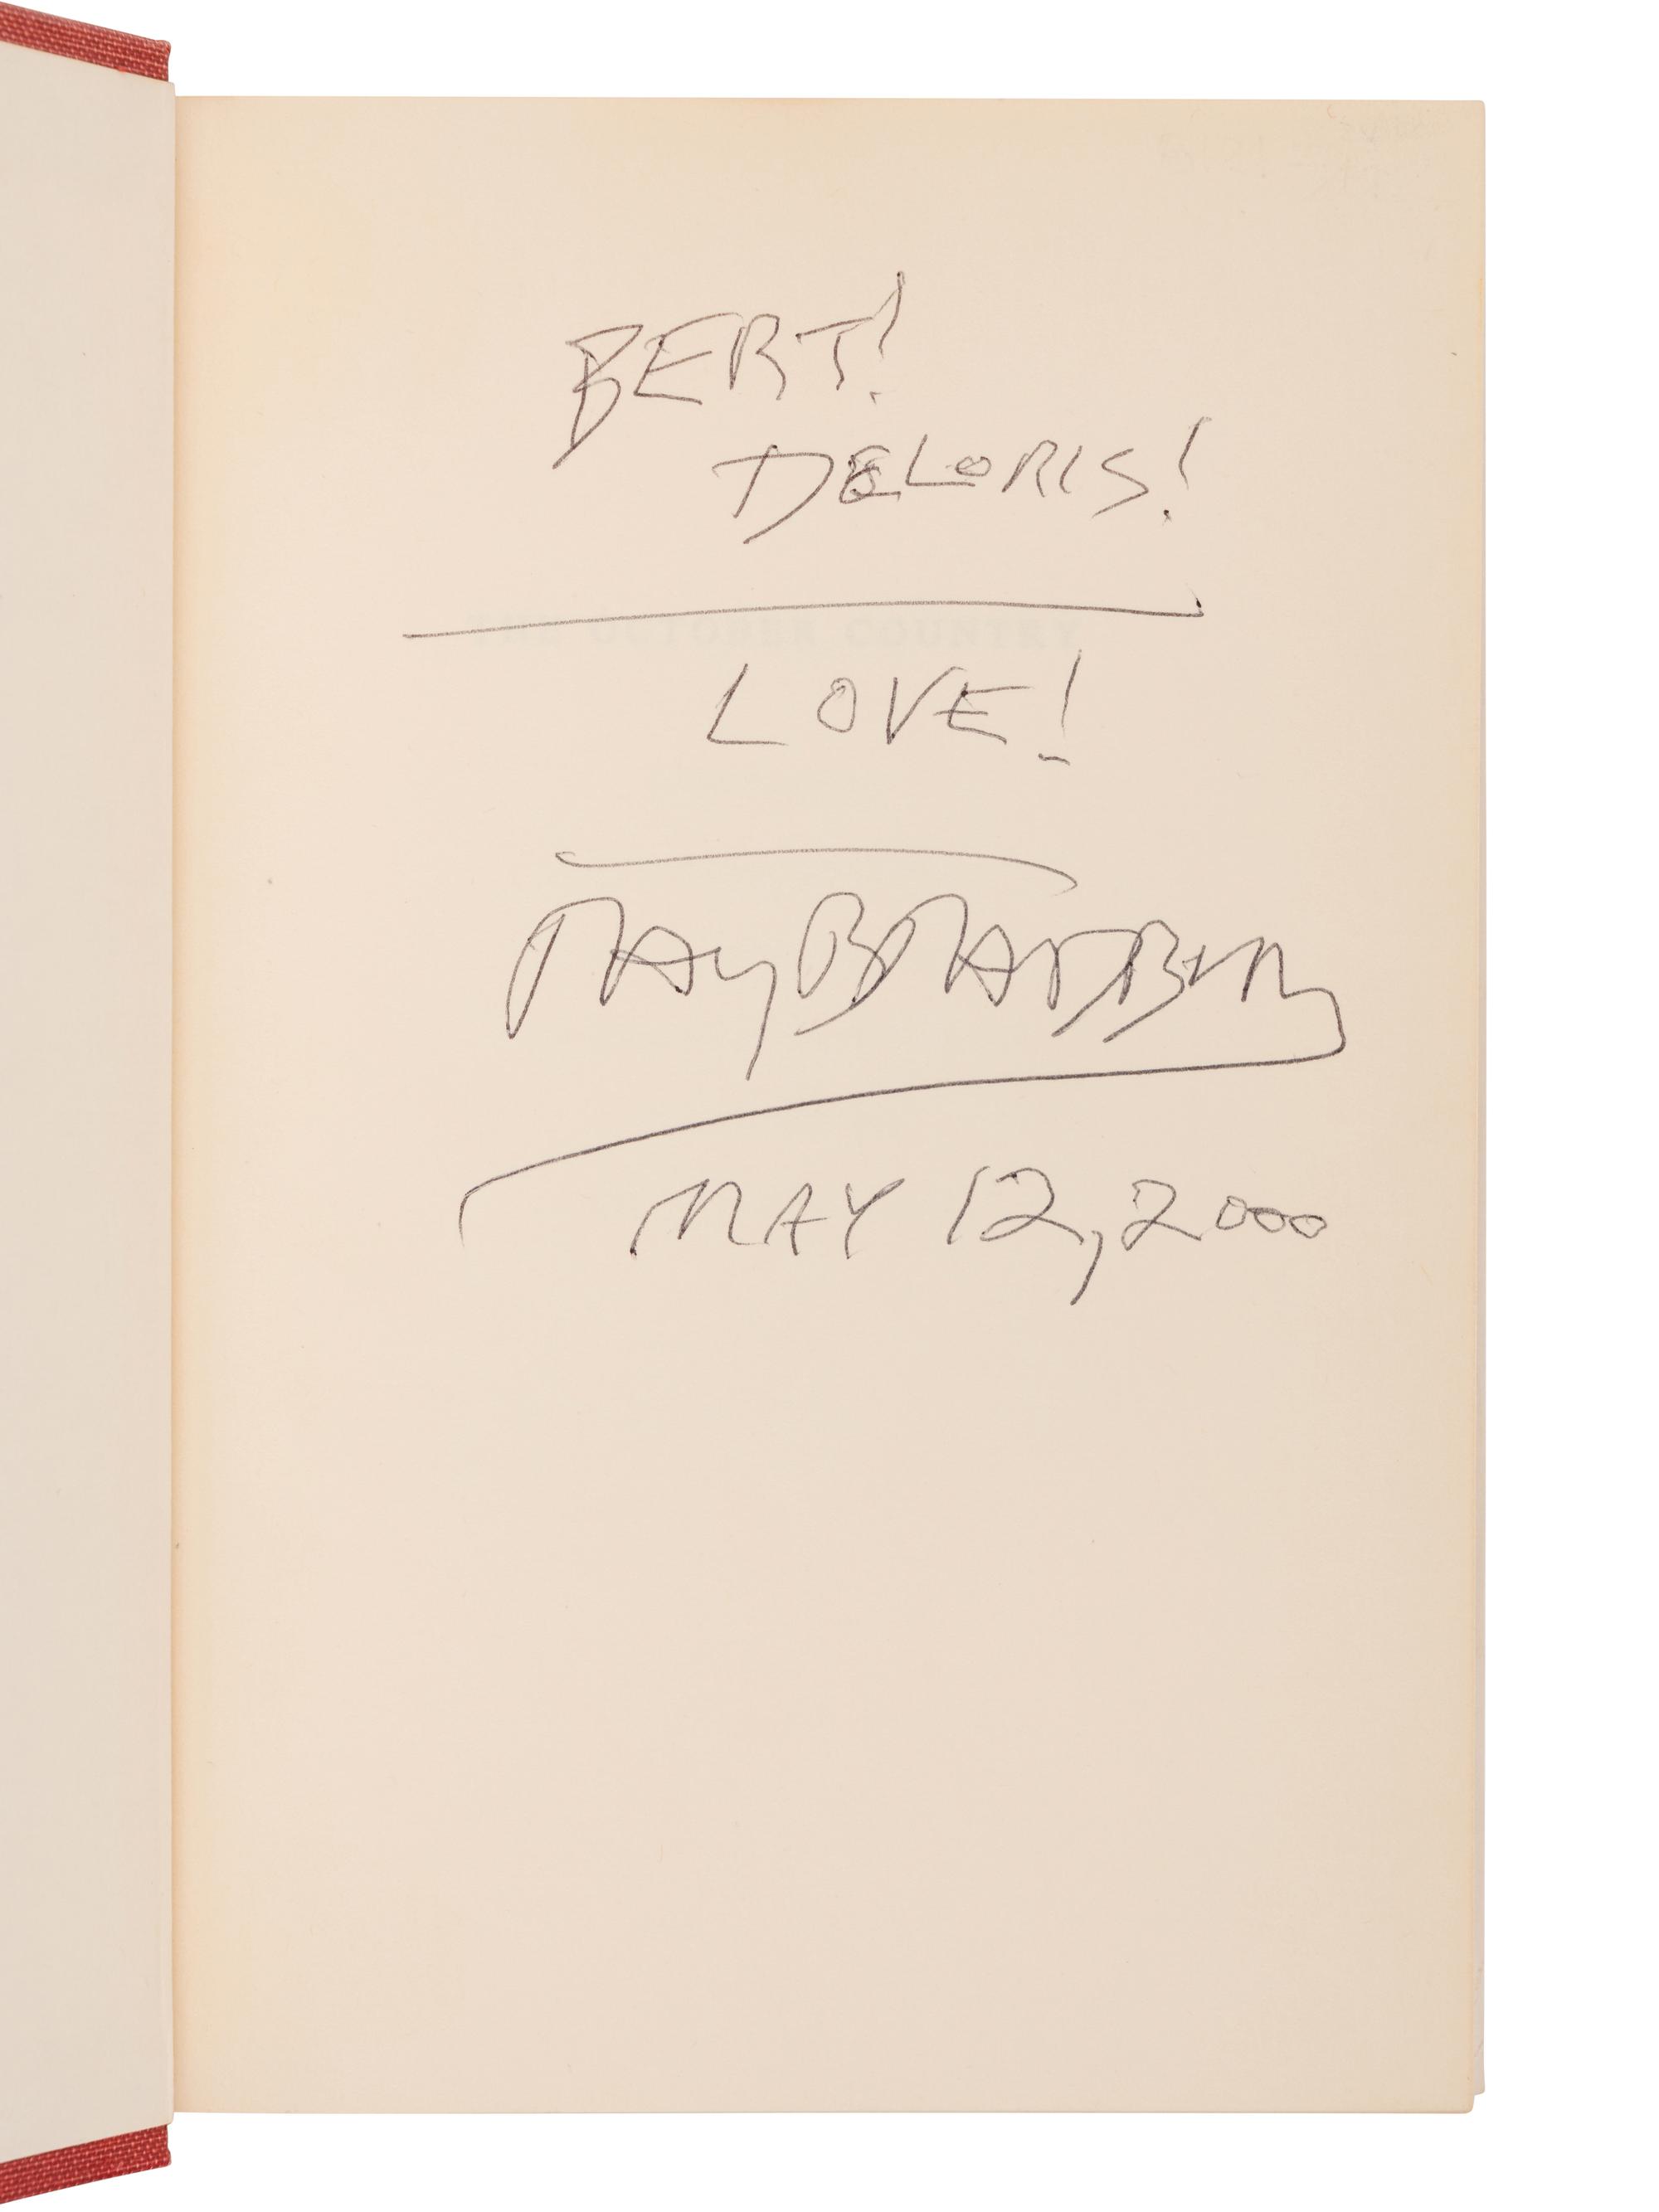 BERT!
DELORIS!
OCTOBER COUNTRY
LOVE!
RAY BRADBURY
MAY 12, 2000